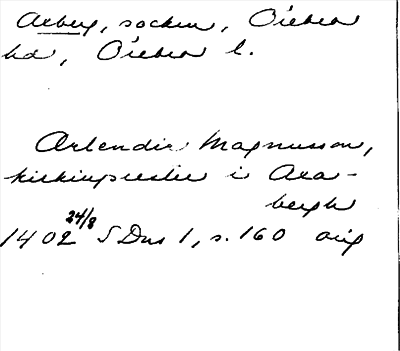 Axberg, socken, Örebro
hd, Örebro l.
Arlendir Magnusson,
kirkiuprester i Axa-
bergh
1402 24/8 SDns 1, s. 160 orig